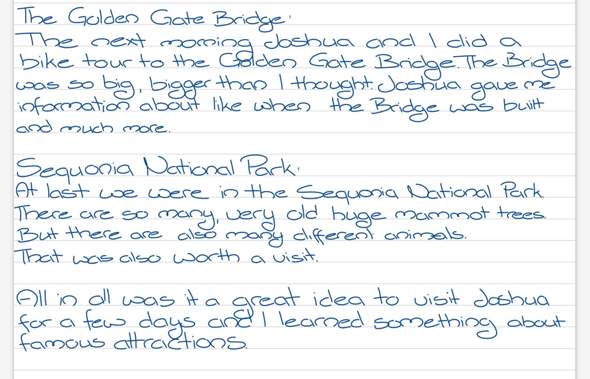 The Golden Gate Bridge:
The next morning Joshua and I did a
bike tour to the Golden Gate Bridge. The Bridge
was so big, bigger than I thought. Joshua gave me
information about like when the Bridge was built
and much more.
Sequonia National Park:
At last we were in the Sequonia National Park.
There are so many, very old huge mammot trees.
But there are also many different animals.
That was also worth a visit.
All in all was it a great idea to visit Joshua
for a few days and I learned something about
famous attractions.